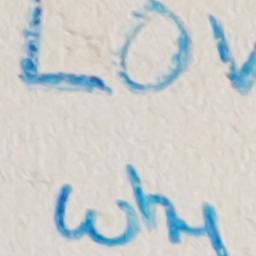 LOV
why